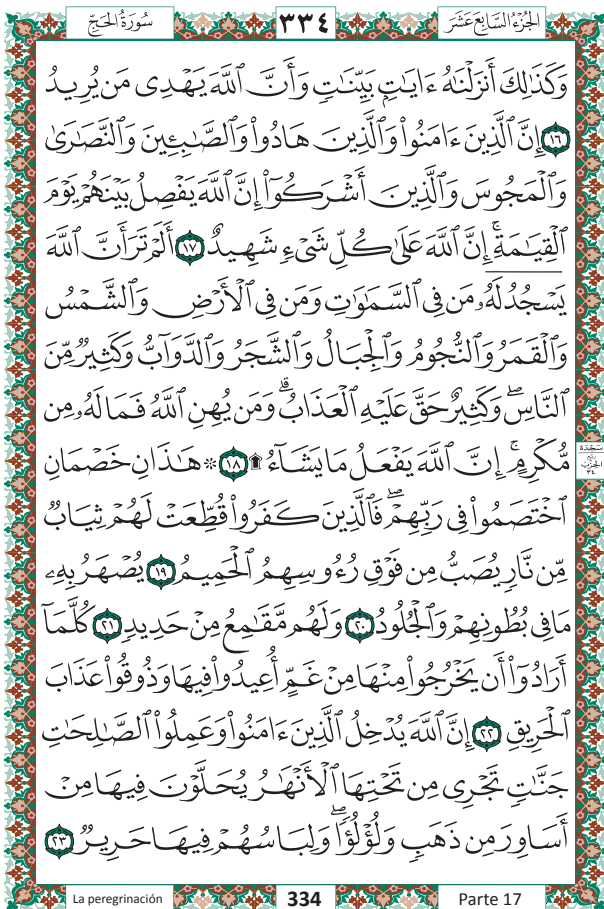 سُورَةُ الحَجِّ ٣٣٤ الجُزْءُ السَّابِعَ عَشَرَ
وَكَذَٰلِكَ أَنزَلْنَٰهُ ءَايَٰتٍۭ بَيِّنَٰتٍ وَأَنَّ ٱللَّهَ يَهْدِى مَن يُرِيدُ
١٦ إِنَّ ٱلَّذِينَ ءَامَنُوا۟ وَٱلَّذِينَ هَادُوا۟ وَٱلصَّٰبِـِٔينَ وَٱلنَّصَٰرَىٰ
وَٱلْمَجُوسَ وَٱلَّذِينَ أَشْرَكُوٓا۟ إِنَّ ٱللَّهَ يَفْصِلُ بَيْنَهُمْ يَوْمَ
ٱلْقِيَٰمَةِۚ إِنَّ ٱللَّهَ عَلَىٰ كُلِّ شَىْءٍ شَهِيدٌ ١٧ أَلَمْ تَرَ أَنَّ ٱللَّهَ
يَسْجُدُ لَهُۥ مَن فِى ٱلسَّمَٰوَٰتِ وَمَن فِى ٱلْأَرْضِ وَٱلشَّمْسُ
وَٱلْقَمَرُ وَٱلنُّجُومُ وَٱلْجِبَالُ وَٱلشَّجَرُ وَٱلدَّوَآبُّ وَكَثِيرٌ مِّنَ
ٱلنَّاسِۖ وَكَثِيرٌ حَقَّ عَلَيْهِ ٱلْعَذَابُۗ وَمَن يُهِنِ ٱللَّهُ فَمَا لَهُۥ مِن
مُّكْرِمٍۚ إِنَّ ٱللَّهَ يَفْعَلُ مَا يَشَآءُ ۩ ١٨ ۞ هَٰذَانِ خَصْمَانِ
سَجْدَة
رُبْع
الحِزْب
٣٤
ٱخْتَصَمُوا۟ فِى رَبِّهِمْۖ فَٱلَّذِينَ كَفَرُوا۟ قُطِّعَتْ لَهُمْ ثِيَابٌ
مِّن نَّارٍ يُصَبُّ مِن فَوْقِ رُءُوسِهِمُ ٱلْحَمِيمُ ١٩ يُصْهَرُ بِهِۦ
مَا فِى بُطُونِهِمْ وَٱلْجُلُودُ ٢٠ وَلَهُم مَّقَٰمِعُ مِنْ حَدِيدٍ ٢١ كُلَّمَآ
أَرَادُوٓا۟ أَن يَخْرُجُوا۟ مِنْهَا مِنْ غَمٍّ أُعِيدُوا۟ فِيهَا وَذُوقُوا۟ عَذَابَ
ٱلْحَرِيقِ ٢٢ إِنَّ ٱللَّهَ يُدْخِلُ ٱلَّذِينَ ءَامَنُوا۟ وَعَمِلُوا۟ ٱلصَّٰلِحَٰتِ
جَنَّٰتٍ تَجْرِى مِن تَحْتِهَا ٱلْأَنْهَٰرُ يُحَلَّوْنَ فِيهَا مِنْ
أَسَاوِرَ مِن ذَهَبٍ وَلُؤْلُؤًاۖ وَلِبَاسُهُمْ فِيهَا حَرِيرٌ ٢٣
La peregrinación 334 Parte 17